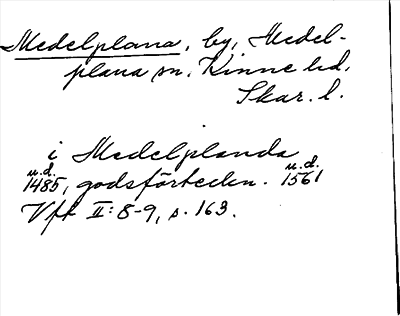 Medelplana, by, Medel-
plana sn, Kinne hd,
Skar. l.
i Medelplanda
u.d. u.d.
1485, godsförteckn. 1561
Vft II: 8-9, s. 163.